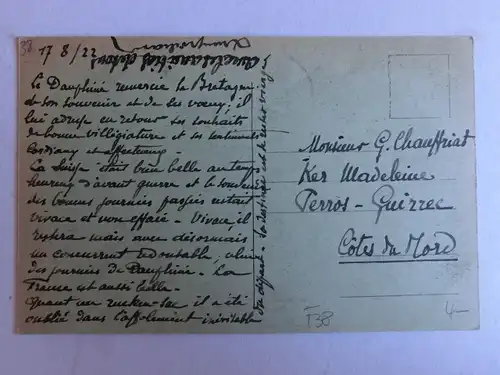 38
17 8/22
Le Dauphiné remercie la Bretagne
de son souvenir et de ses vœux ; il
lui adresse en retour ses souhaits
de bonne villégiature et ses sentiments
cordiaux et affectueux.
La Suisse était bien belle au temps
heureux d'avant guerre et le souvenir
des bonnes journées passées restait
vivace et non effacé. Vivace, il
restera mais avec désormais
un concurrent redoutable, celui
des journées de Dauphiné. La
France est aussi belle.
Quant au rucken-sac il a été
oublié dans l'affolement inévitable
du départ.
Monsieur G. Chauffriat
Ker Madeleine
Perros-Guirrec
Côtes du Nord
T38
4-